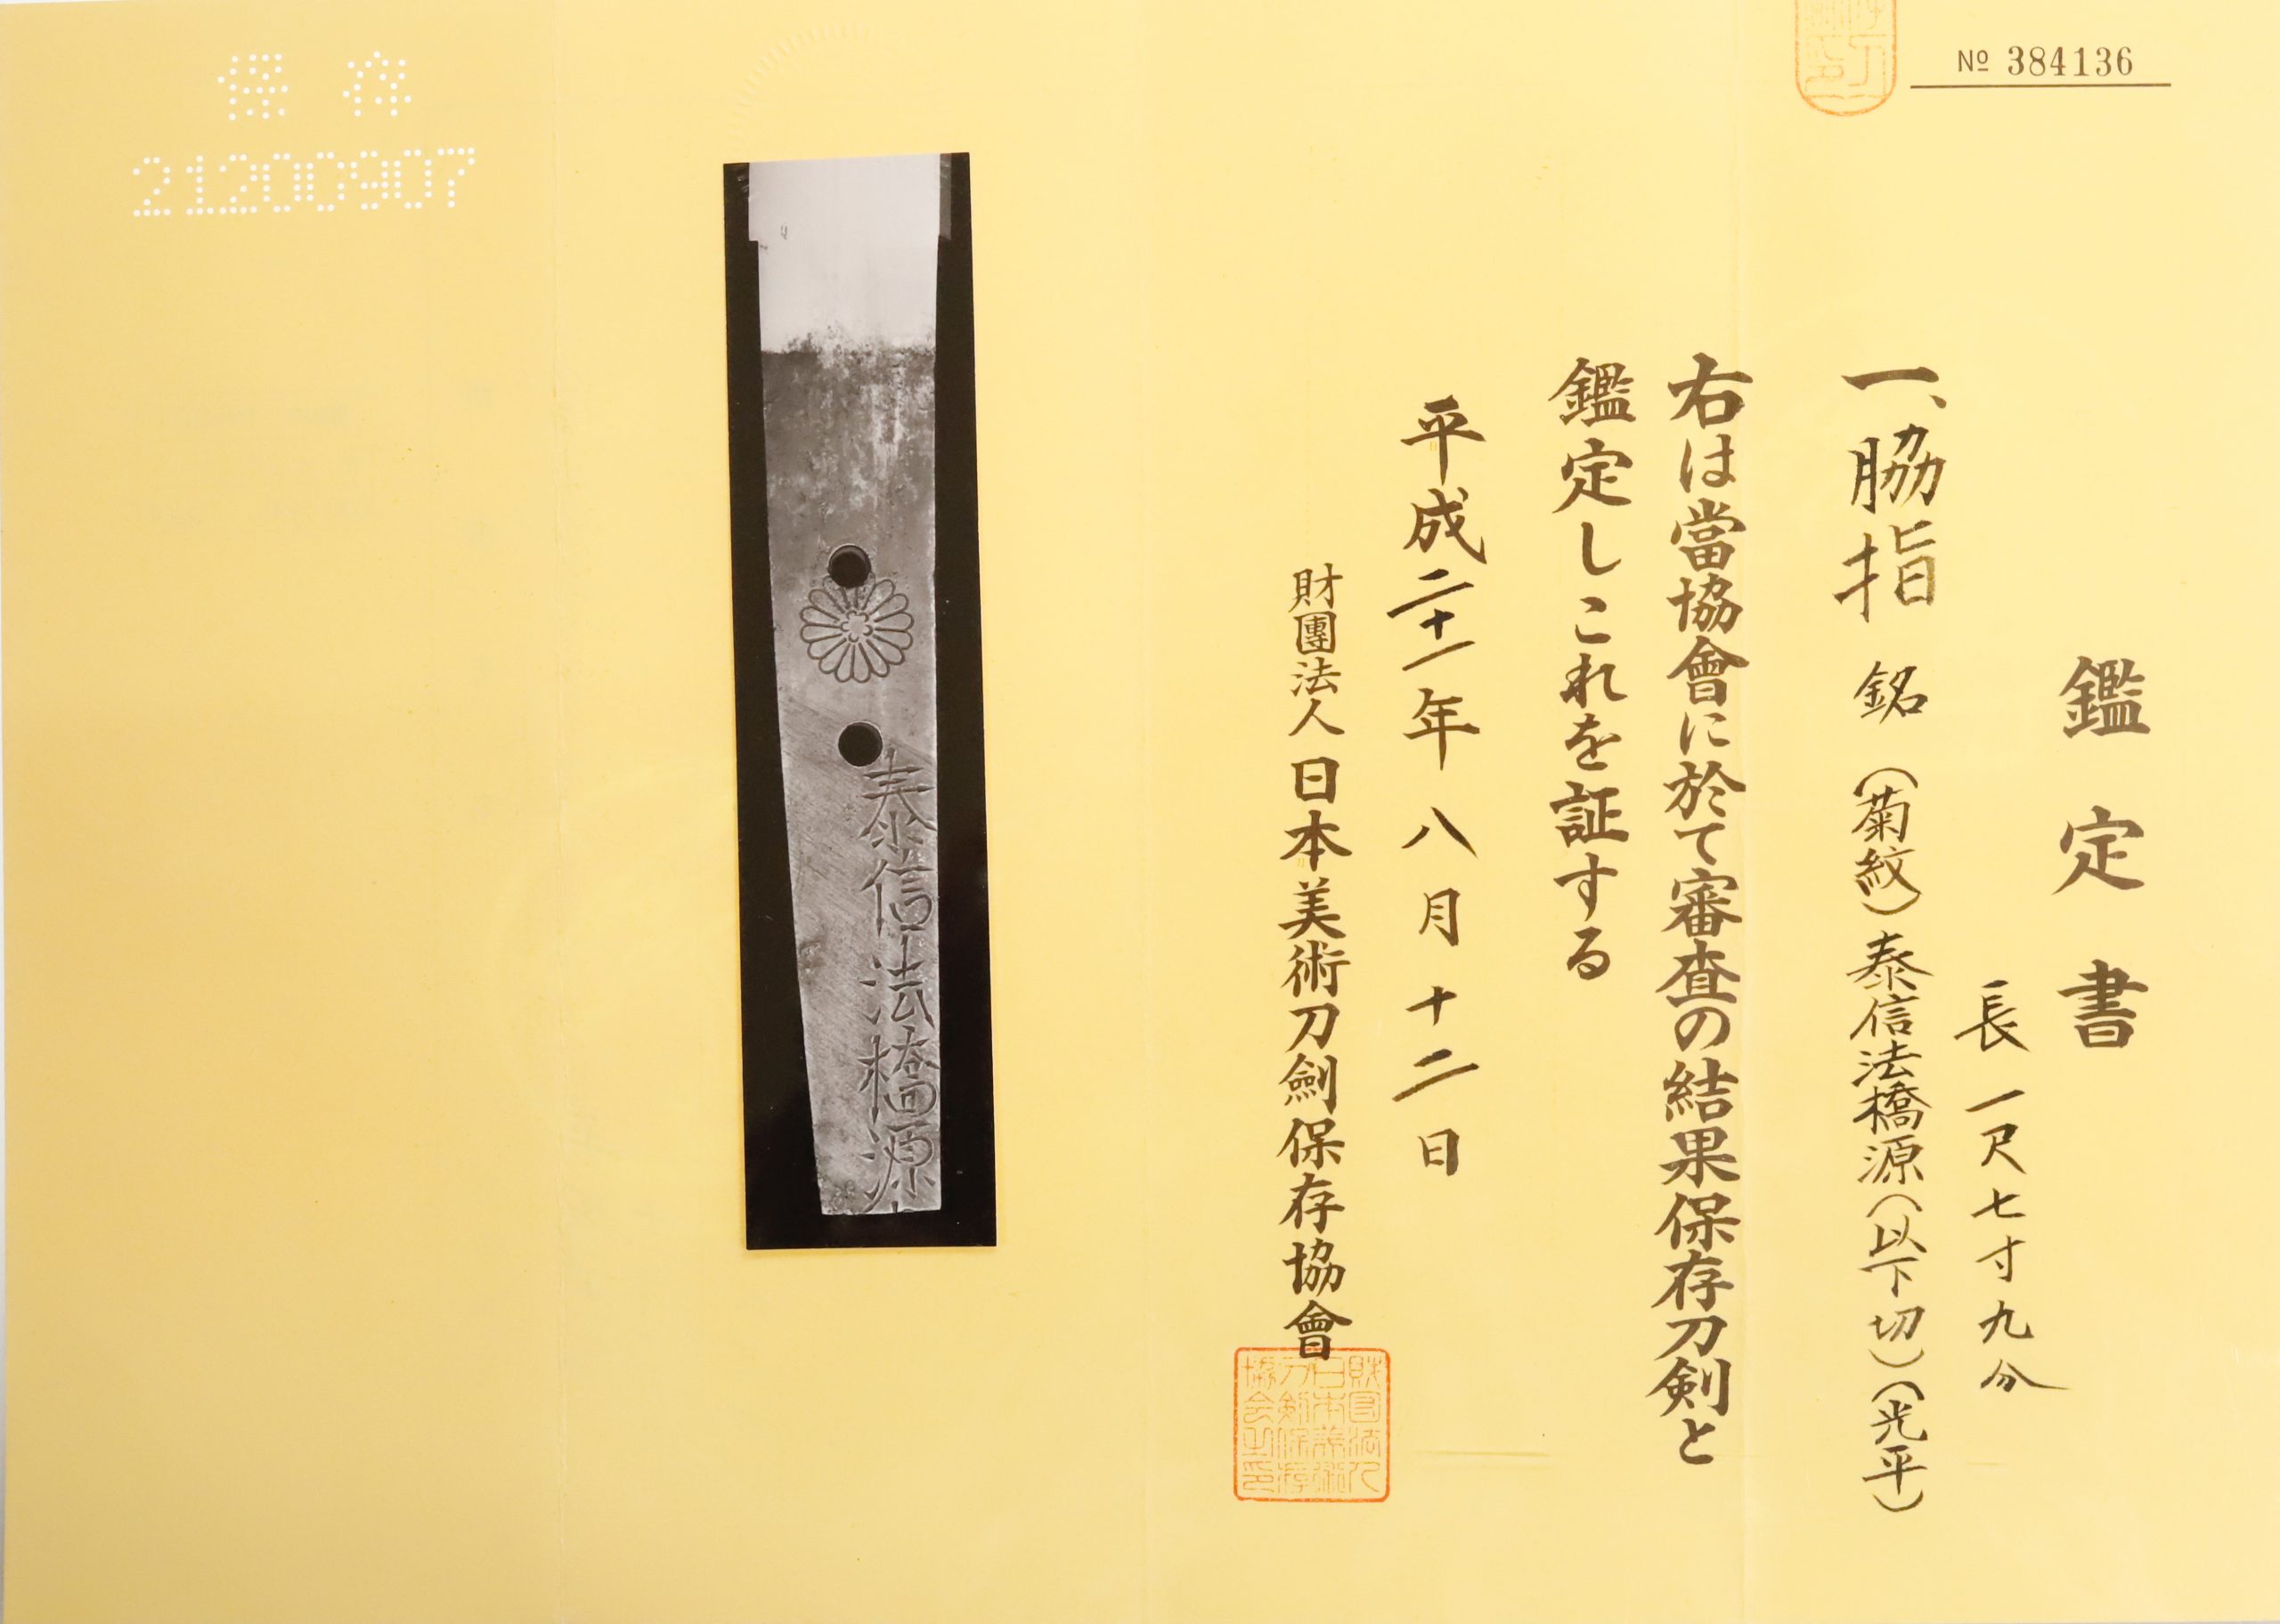 № 384136
鑑定書
長一尺七寸九分
一、脇指 銘(菊紋)泰信法橋源(以下切)(光平)
右は當協會に於て審査の結果保存刀剣と
鑑定しこれを証する
平成二十一年八月十二日
財團法人日本美術刀劍保存協會
財団法人
日本美術
刀剣保存
協会之印
泰信法橋源
保存
21200907